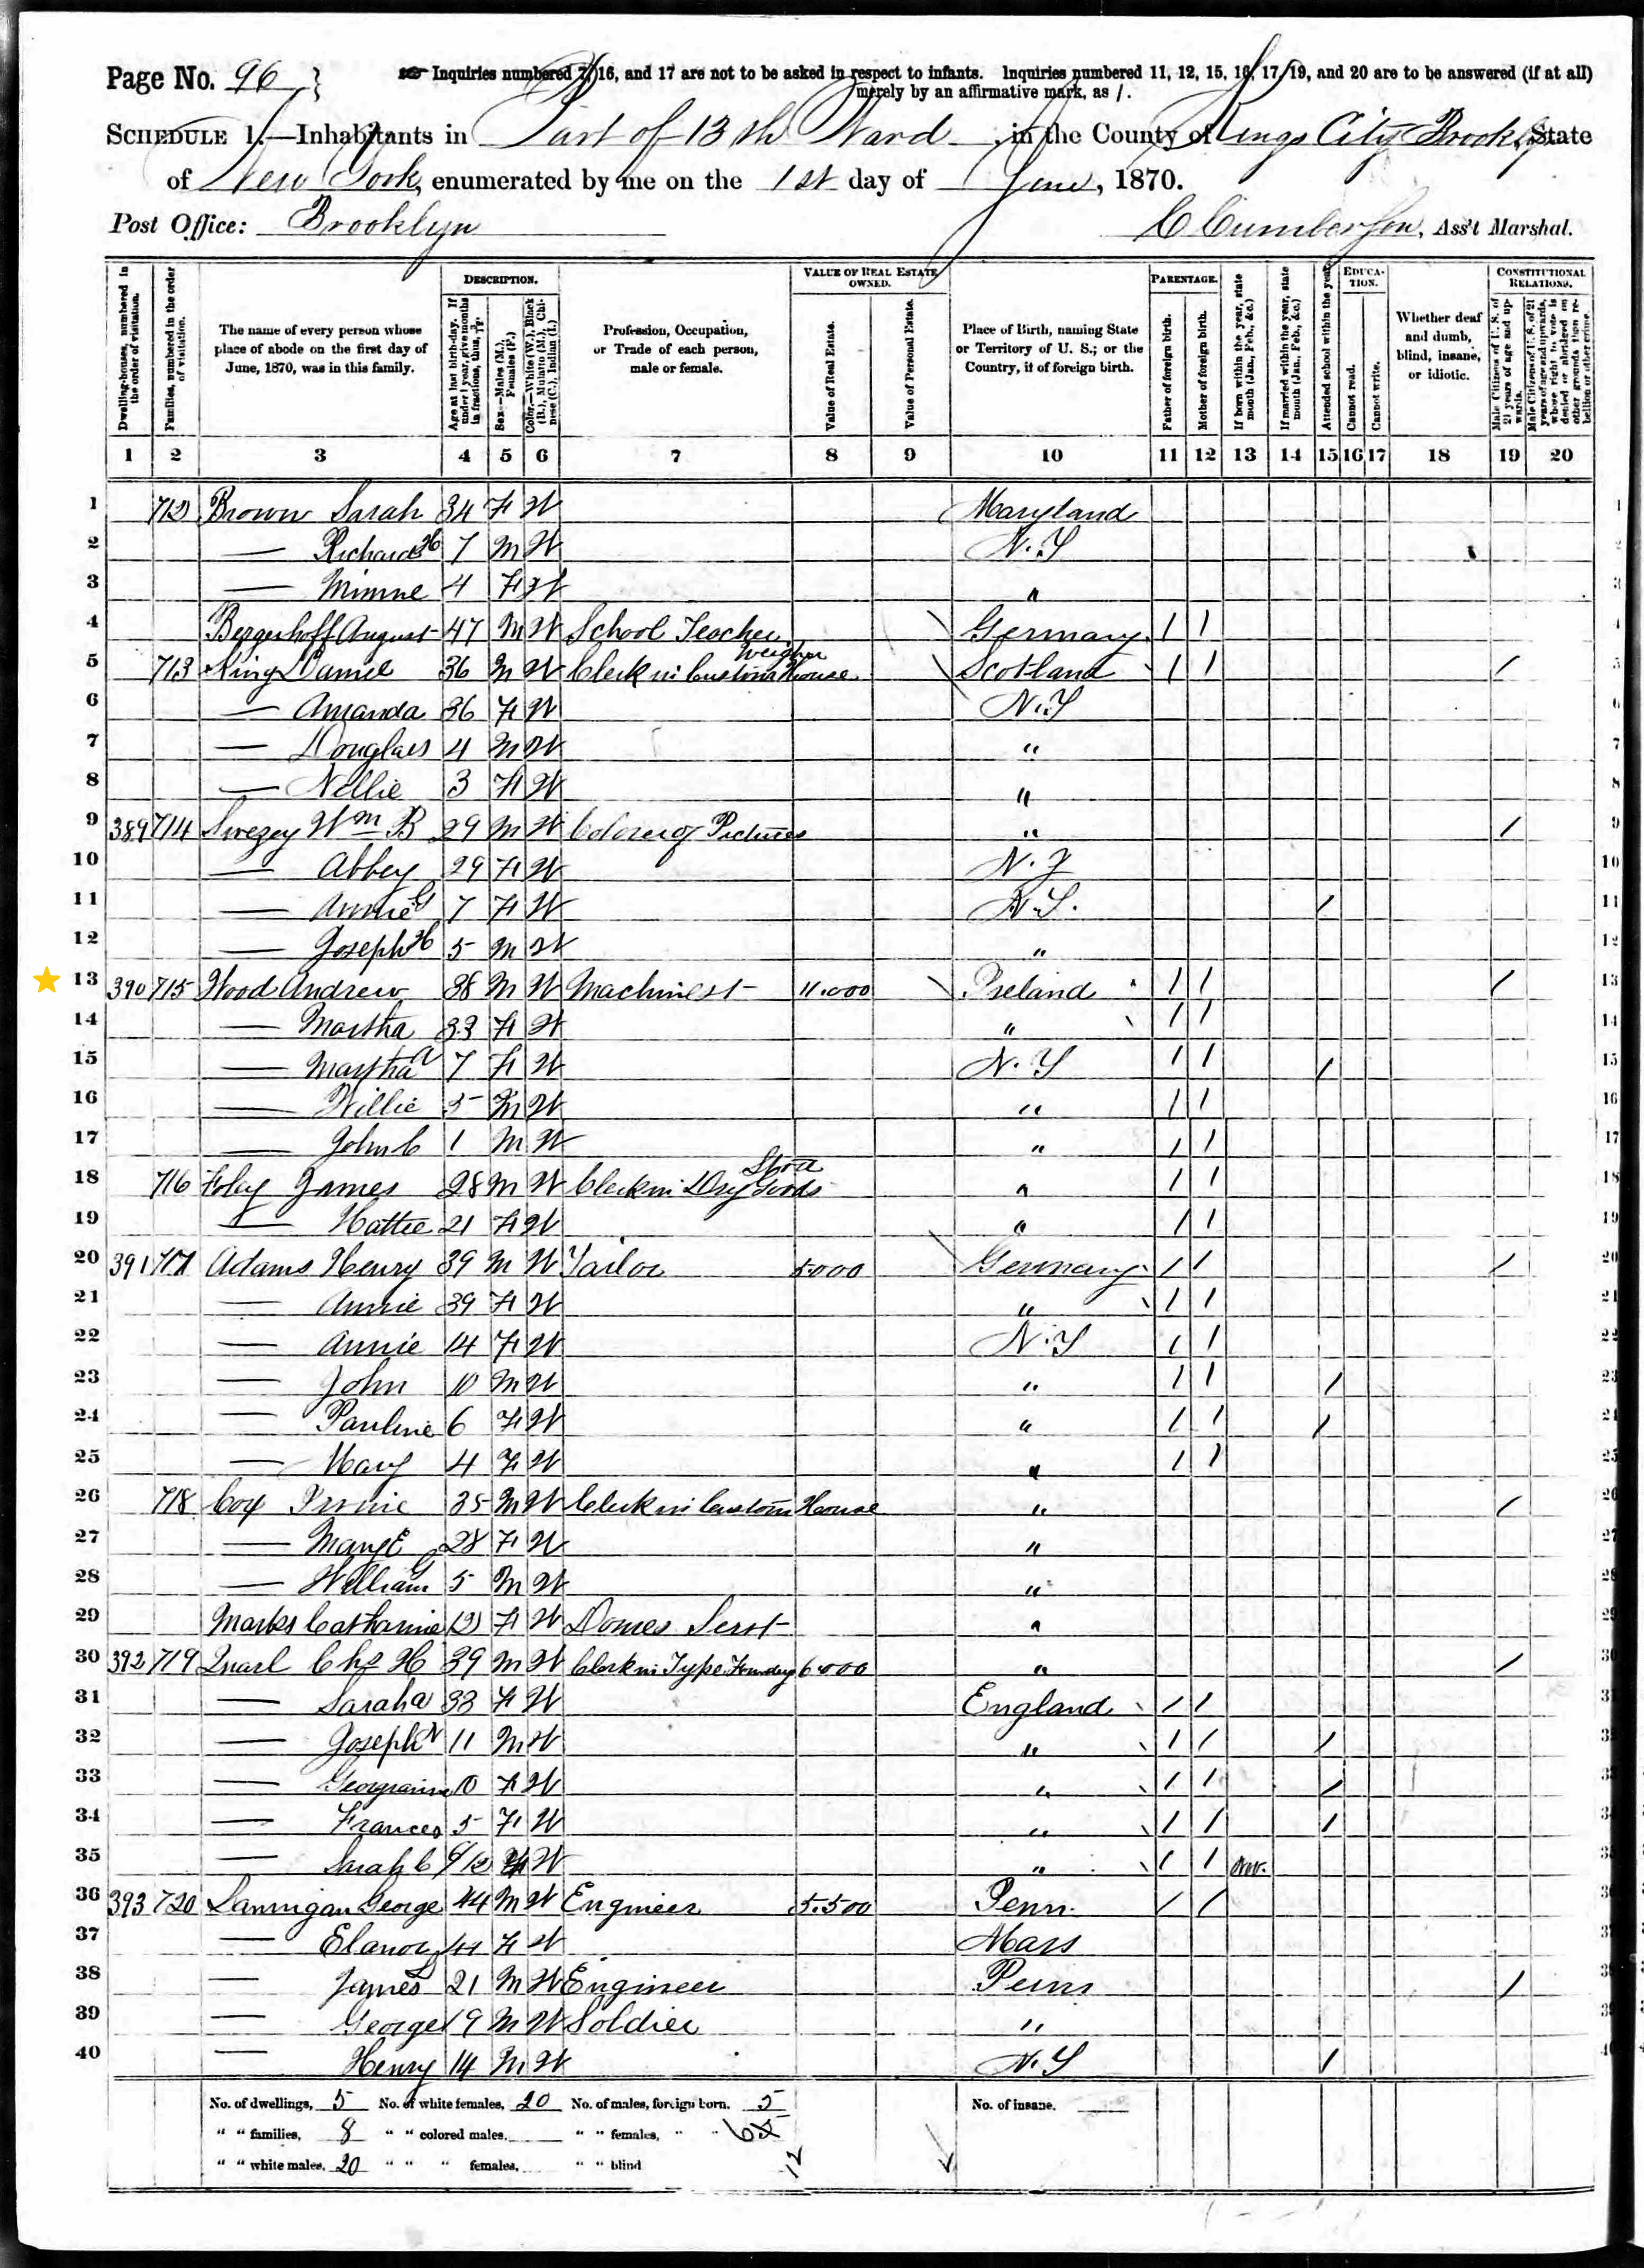 Page No. 96
Inquiries numbered 7, 16, and 17 are not to be asked in respect to infants. Inquiries numbered 11, 12, 15, 16, 17, 19, and 20 are to be answered (if at all)
merely by an affirmative mark, as /.
SCHEDULE 1.—Inhabitants in Part of 13th Ward, in the County of Kings City Brooklyn, State
of New York, enumerated by me on the 1st day of June, 1870.
Post Office: Brooklyn
Ass't Marshal.
DESCRIPTION. VALUE OF REAL ESTATE OWNED. PARENTAGE. EDUCATION. CONSTITUTIONAL RELATIONS.
Dwelling-houses, numbered in the order of visitation.
Families, numbered in the order of visitation.
The name of every person whose place of abode on the first day of June, 1870, was in this family.
Age at last birth-day. If under 1 year, give months in fractions, thus, 3/12.
Sex.—Males (M.), Females (F.)
Color.—White (W.), Black (B.), Mulatto (M.), Chinese (C.), Indian (I.)
Profession, Occupation, or Trade of each person, male or female.
Value of Real Estate.
Value of Personal Estate.
Place of Birth, naming State or Territory of U. S.; or the Country, if of foreign birth.
Father of foreign birth.
Mother of foreign birth.
If born within the year, state month (Jan., Feb., &c.)
If married within the year, state month (Jan., Feb., &c.)
Attended school within the year.
Cannot read.
Cannot write.
Whether deaf and dumb, blind, insane, or idiotic.
Male Citizens of U. S. of 21 years of age and upwards.
Male Citizens of U. S. of 21 years of age and upwards, whose right to vote is denied or abridged on other grounds than rebellion or other crime.
1 2 3 4 5 6 7 8 9 10 11 12 13 14 15 16 17 18 19 20
1 712 Brown Sarah 34 F W Maryland 1
2 — Richard H 7 M W N.Y 2
3 — Minnie 4 F W " 3
4 Bergerhoff August 47 M W School Teacher Germany / / 4
5 713 King Daniel 36 M W Clerk in Custom House Weigher Scotland / / / 5
6 — Amanda 36 F W N.Y 6
7 — Douglass 4 M W " 7
8 — Nellie 3 F W " 8
9 389 714 Swezey Wm B 29 M W Colorer of Pictures " / 9
10 — Abbey 29 F W N.J 10
11 — Annie G 7 F W N.Y. / 11
12 — Joseph H 5 M W " 12
13 390 715 Wood Andrew 38 M W Machinest 11.000 Ireland / / / 13
14 — Martha 33 F W " / / 14
15 — Martha A 7 F W N.Y / / / 15
16 — Willie 5 M W " / / 16
17 — John C 1 M W " / / 17
18 716 Foley James 28 M W Clerk in Dry Goods Store " / / 18
19 — Hattie 21 F W " / / 19
20 391 717 Adams Henry 39 M W Tailor 5000 Germany / / / 20
21 — Annie 39 F W " / / 21
22 — Annie 14 F W N.Y / / 22
23 — John 10 M W " / / / 23
24 — Pauline 6 F W " / / / 24
25 — Mary 4 F W " / / 25
26 718 Coy 35 M W Clerk in Custom House " / 26
27 — Mary E 28 F W " 27
28 — William G 5 M W " 28
29 Marks Catharine 12 F W Domes Servt " 29
30 392 719 Quarl Chs H 39 M W Clerk in Type Foundry 6000 " / 30
31 — Sarah A 33 F W England / / 31
32 — Joseph N 11 M W " / / / 32
33 — Georgianna 10 F W " / / / 33
34 — Frances 5 F W " / / / 34
35 — Sarah C 9/12 F W " / / 35
36 393 720 Lannigan George 44 M W Engineer 5.500 Penn. / / 36
37 — Elanor 44 F W Mass 37
38 — James L 21 M W Engineer Penn / 38
39 — George 19 M W Soldier " 39
40 — Henry 14 M W N.Y / 40
No. of dwellings, 5 No. of white females, 20 No. of males, foreign born, 5 No. of insane,
" " families, 8 " " colored males, " " females, " 6
" " white males, 20 " " " females, " " blind
12